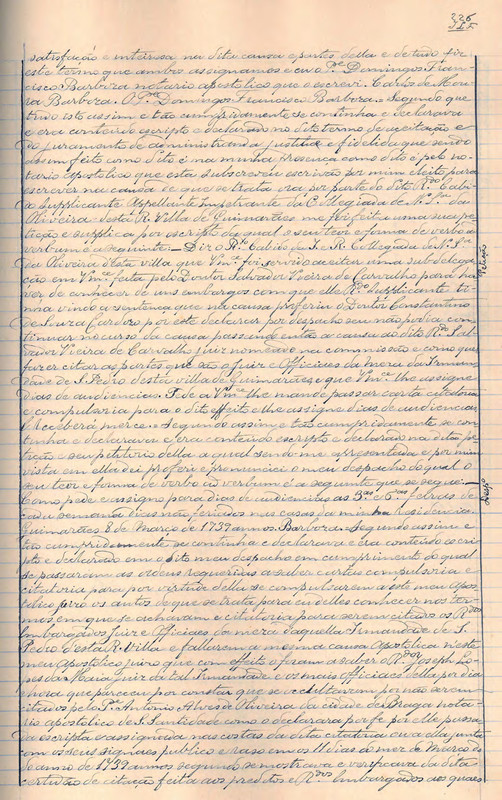 326
satisfação e inteirsa na dita causa e partes della e de tudo fiz
este termo que ambos assignamos e eu o P.e Domingos Fran-
cisco Barboza notario apostolico que o escrevi. Carlos de Mou-
ra Barboza. O P.e Domingos Francisco Barboza. Segundo que
tudo isto assim e tão cumpridamente se continha e declarava
e era conteudo escripto e declarado no dito termo de aceitação e
do juramento de administrar justiça e fidelidade que sendo
assim feito como dito é na minha presença como dito é pelo no-
tario apostolico que esta subscreveu escrivão por mim eleito para
escrever na causa de que se trata era por parte do dito R.do Cabi-
do Supplicante Appellante Impetrante da Collegiada de N. S.ra da
Oliveira desta R. Villa de Guimarães me foi feita uma sua pe-
tição e supplica por escripto da qual o seu teor e forma de verbo ad
verbum é a seguinte = Diz o R.do Cabido da I. R. Collegiada de N. S.ra
da Oliveira desta villa que V.mce foi servido aceitar uma subdelega-
ção em V.mce feita pelo Doutor Salvador Vieira de Carvalho para ha-
ver de conhecer de uns embargos com que elle R.do Supplicante ti-
nha vindo a sentença que na causa proferiu o Doutor Constantino
de Souza Cardozo por este declarar por despacho seu não podia con-
tinuar no curso da causa passando então a causa ao dito R.do Sal-
vador Vieira de Carvalho juiz nomeado na commissão e como quer
fazer citar as partes que são o juiz e Officiaes da meza da Irman-
dade de S. Pedro d'esta villa de Guimarães e que V.mce lhe assigne
dias de audiencias. P. de a V.mce lhe mande passar carta citatoria
e compulsoria para o dito effeito e lhe assigne dias de audiencias
E receberá mercê. Segundo assim e tão cumpridamente se con-
tinha e declarava e era conteudo escripto e declarado na dita pe-
tição e seu petitorio della a qual sendo-me apresentada e por mim
vista em ella dei proferi e pronunciei o meu despacho do qual o
seu teor e forma de verbo ad verbum é a seguinte que se segue:
Como pede e assigno para dias de audiencias as 3.as e 6.as feiras de
cada semana dias não feriados nas casas da minha residencia.
Guimarães 8 de Março de 1739 annos. Barboza. Segundo assim e
tão cumpridamente se continha e declarava e era conteudo escri-
pto e declarado em o dito meu despacho em cumprimento do qual
se passaram as ordens requeridas a saber cartas compulsoria e
citatoria para por virtude della se compulsarem a este meu Apos-
tolico juizo os autos de que se trata para eu delles conhecer nos ter-
mos em que se achavam e citatoria para serem citados os R.dos
Embargados juiz e Officiaes da meza daquella Irmandade de S.
Pedro d'esta R. Villa e fallarem á mesma causa Apostolica neste
meu Apostolico juizo que com effeito o foram a saber o R.do Joseph Lo-
pes da Maia juiz da tal Irmandade e os mais officiaes della por dia
e hora que pareceu por constar que se occultarem por não serem
citados pelo P.e Antonio Alves de Oliveira da cidade de Braga nota-
rio apostolico de S. Santidade como o declarara por fé por elle passa-
da escripta e assignada nas costas da dita citatoria era ella junta
com os seus signaes publico e raso em os 11 dias do mez de Março do
de anno de 1739 annos segundo se mostrava e verificava da dita
certidão de citação feita aos preditos e R.dos Embargados aos quaes
Petição
Desp.º